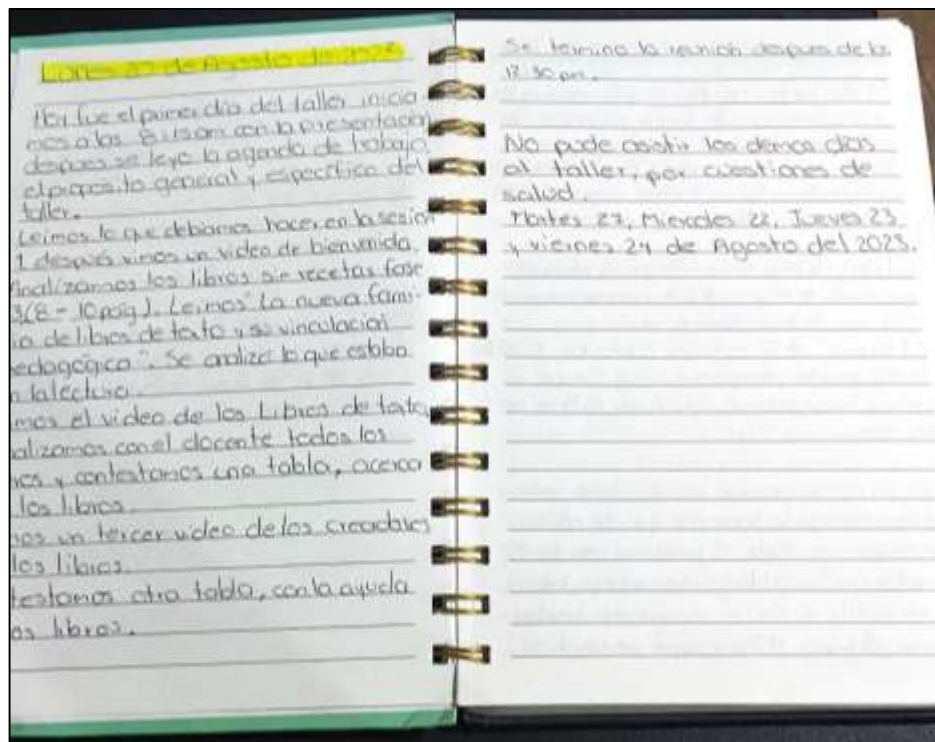 Lunes de Agosto de 2023
Hoy fue el primer día del taller, inicia-
mos a las 8:15am con la presentación
despues se leyo la agenda de trabajo,
el proposito general y especifico del
taller.
Leimos lo que debiamos hacer en la sesion
1 después vimos un video de bienvenida.
Analizamos los libros sin recetas fase
3 (8 - 10 pág). Leimos "La nueva fami-
de libros de texto y su vinculación
pedagógica". Se analizo lo que estaba
la lectura.
mos el video de los Libros de texto,
alizamos con el docente todos los
ros y contestamos una tabla, acerca
los libros.
mos un tercer video de los creadores
los libros.
testamos otra tabla, con la ayuda
os libros.
Se termino la reunión despues de las
12:30 pm.
No pude asistir los demas días
al taller, por cuestiones de
salud.
Martes Miercoles 22, Jueves 23
y viernes 24 de Agosto del 2023.